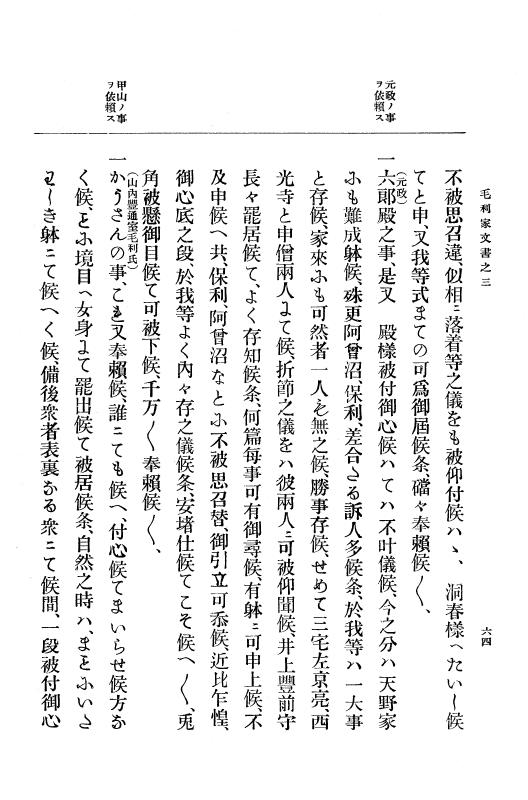 毛利家文書之三
六四
元政ノ事
ヲ依頼ス
甲山ノ事
ヲ依頼ス
不被思召違、似相ニ落着等之儀をも被仰付候ハヽ、洞春樣へたいし候
てと申、又我等式まての可爲御屆候条、礑々奉賴候〳〵、
(元政)
一六郞殿之事、是又 殿樣被付御心候ハてハ不叶儀候、今之分ハ天野家
にも難成躰候、殊更阿曾沼、保利、差合さる訴人多候条、於我等ハ一大事
と存候、家來にも可然者一人も無之候、勝事存候、せめて三宅左京亮、西
光寺と申僧兩人まて候、折節之儀をハ彼兩人ニ可被仰聞候、井上豐前守
長々罷居候て、よく存知候条、何篇每事可有御尋候、有躰ニ可申上候、不
及申候へ共、保利、阿曾沼なとに不被思召替、御引立可忝候、近比乍惶、
御心底之段、於我等よく內々存之儀候条、安堵仕候てこそ候へ〳〵、兎
角被懸御目候て可被下候、千万〳〵奉賴候〳〵、
(山內豐通室毛利氏)
一かうさんの事、こも又奉賴候、誰ニても候へ、付心候てまいらせ候方な
く候、ことに境目へ女身まて罷出候て被居候条、自然之時ハ、まことにいさ
ましき躰ニて候へく候、備後衆者表裏なる衆ニて候間、一段被付御心